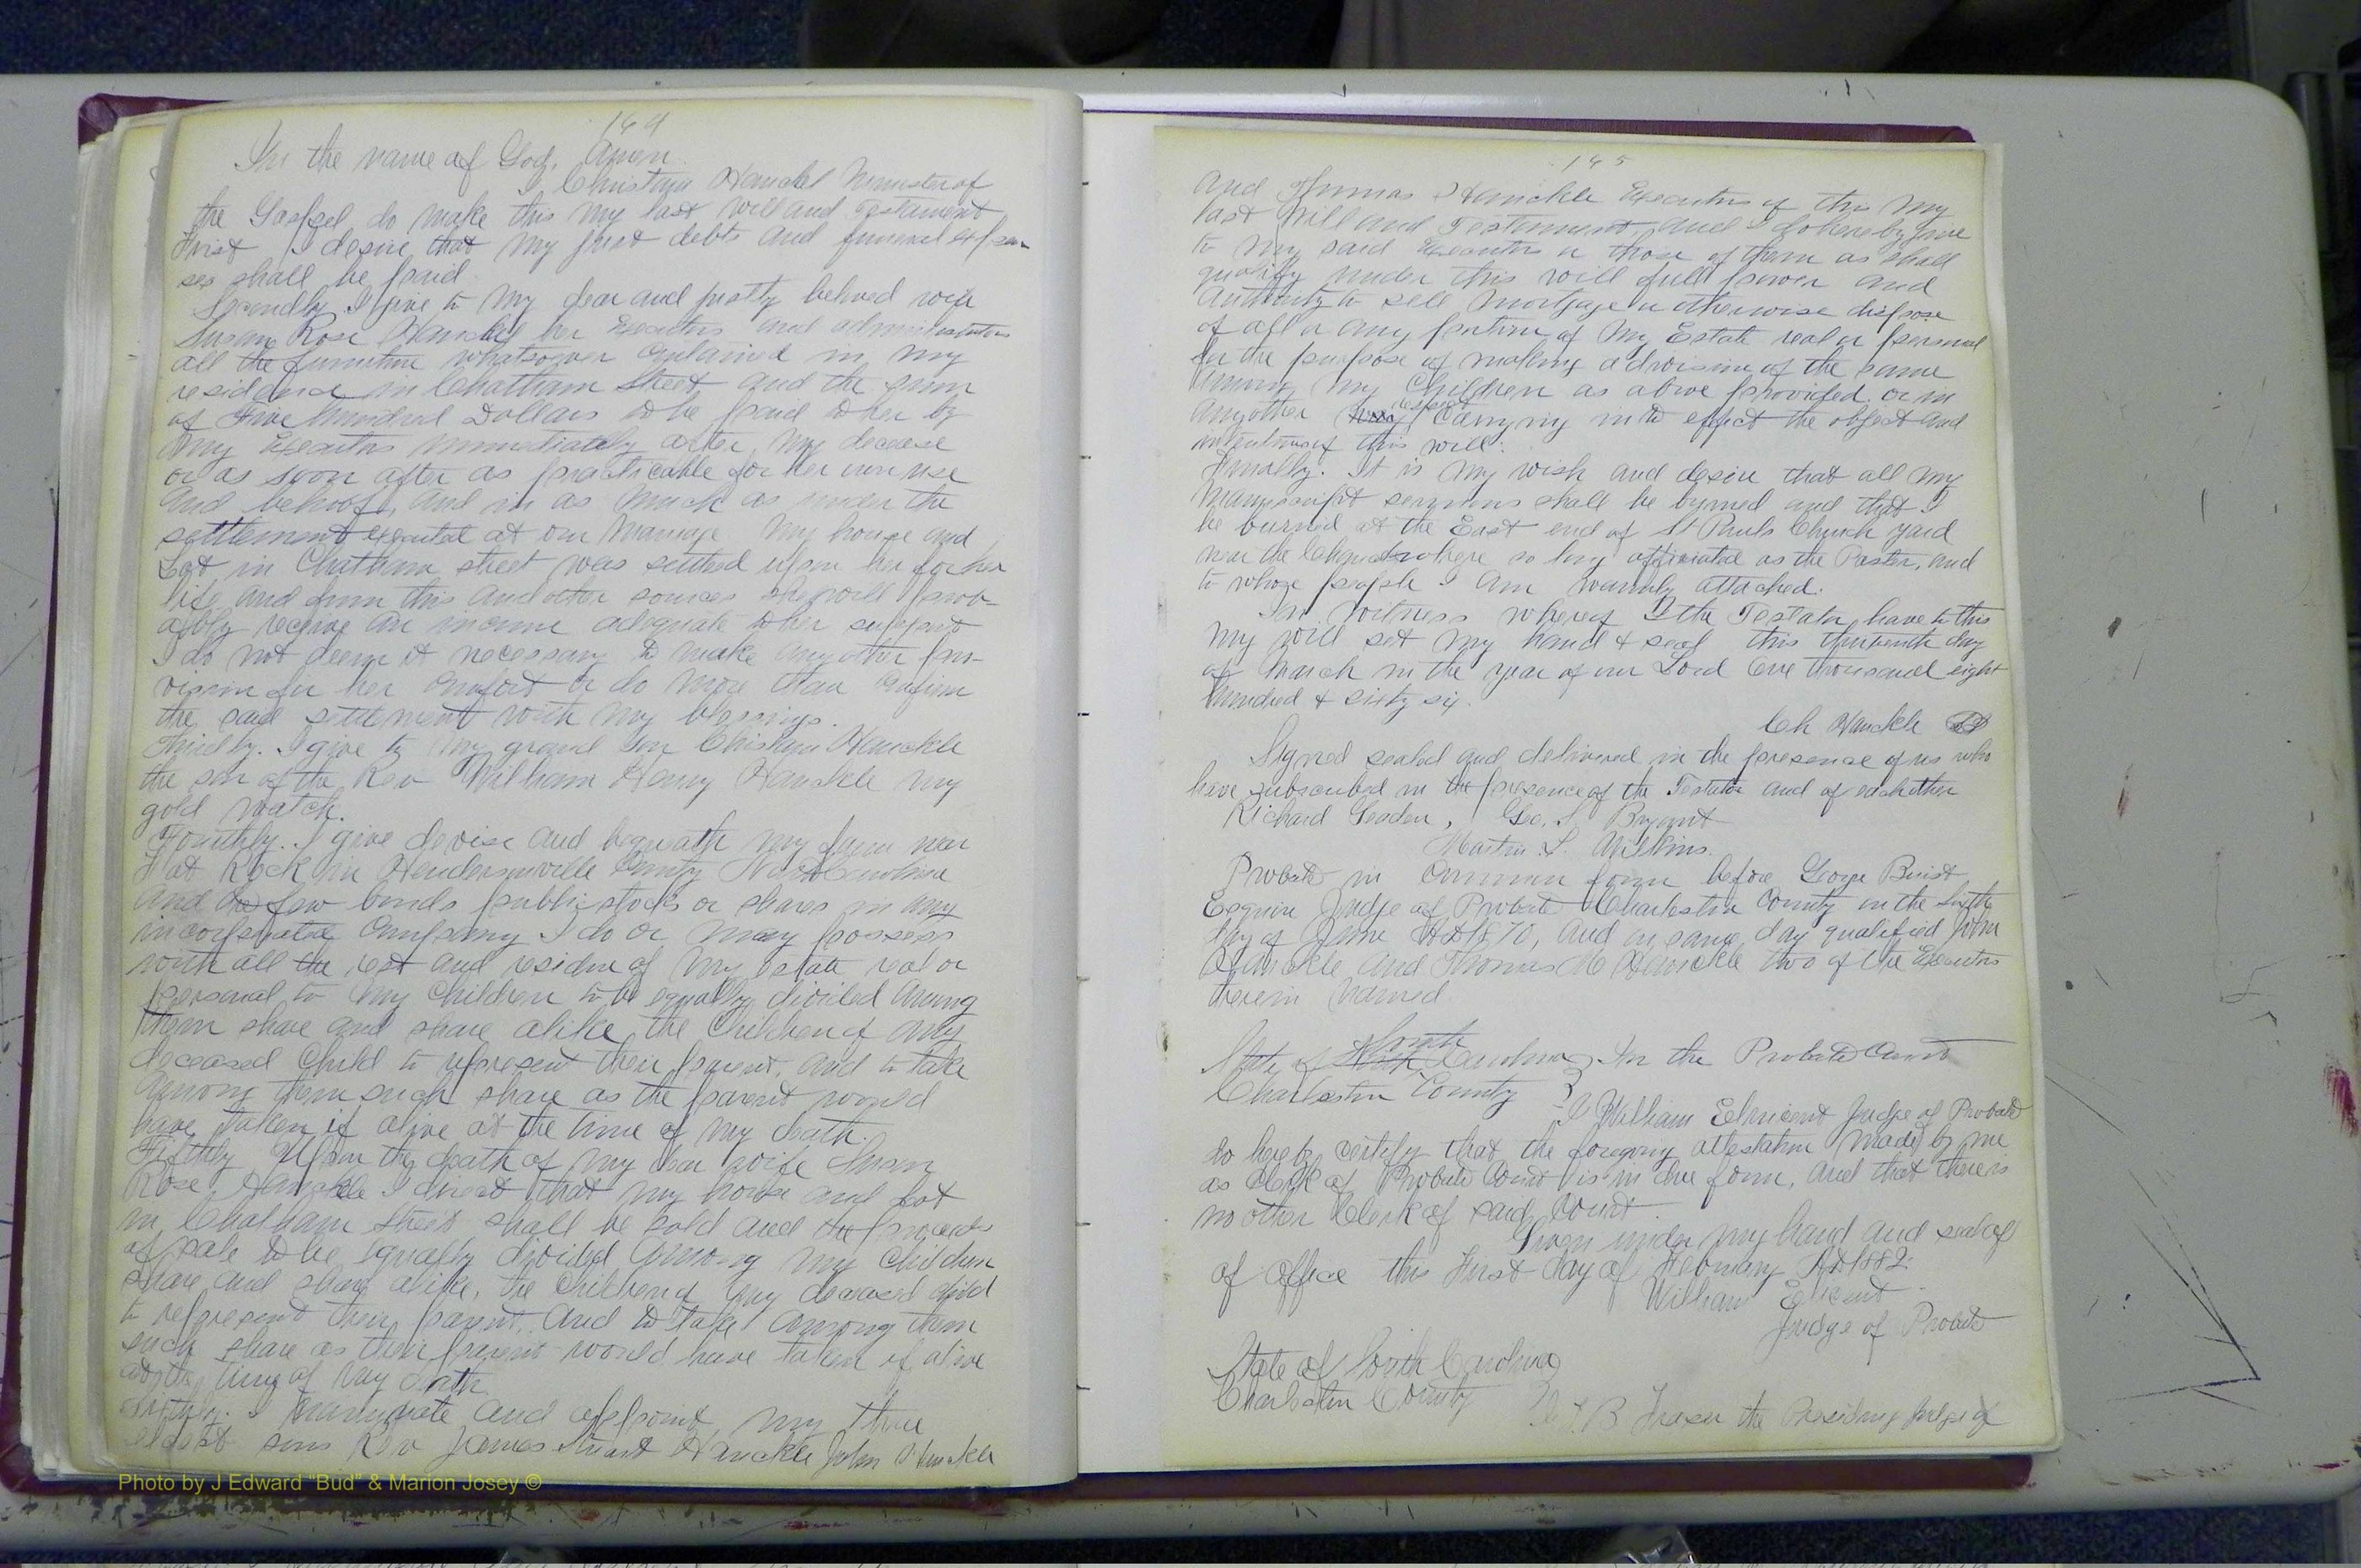 164
In the name of God, Amen
I Christian Hanckel Minister of
the Gospel do make this my last will and Testament
First I desire that my just debts and funeral expen
ses shall be paid.
Secondly I give to my dear and justly beloved wife
Susan Rose Hanckel her Executors and administrators
all the furniture whatsoever contained in my
residence in Chatham Street and the sum
of Five hundred Dollars to be paid to her by
my Executors immediately after my decease
or as soon after as practicable for her own use
and behoof, and in as much as under the
settlement executed at our Marriage My house and
Lot in Chatham street was settled upon her for her
life and from this and other sources she will prob-
ably receive an income adequate to her support
I do not deem it necessary to make any other pro-
vision for her comfort or do more than confirm
the said settlement with my blessings.
Thirdly. I give to my grand son Christian Hanckle
the son of the Rev William Henry Hanckle my
gold watch.
Fourthly. I give devise and bequeath my farm near
Flat Rock in Hendersonville County North Carolina
and the few bonds public stocks or shares in any
incorporated Company I do or may possess
with all the rest and residue of my estate real or
personal to my children to be equally divided among
them share and share alike, the Children of my
deceased Child to represent their parent, and to take
among them such share as the parent would
have taken if alive at the time of my death.
Fifthly Upon the death of my dear wife Susan
Rose Hanckle I direct that my house and lot
in Chatham Street shall be sold and the proceeds
of sale to be equally divided among my children
share and share alike, the Children of my deceased child
to represent their parent, And to take among them
such share as their parent would have taken if alive
at the time of my death.
Sixthly. I nominate and appoint my three
eldest sons Rev James Stuart Hanckle John Hanckle
145
and Thomas Hanckle Executors of this My
last Will and Testament, and I do hereby give
to my said Executors or those of them as shall
qualify under this will full power and
Authority to sell Mortgage or otherwise dispose
of all or any portion of My Estate real or personal
for the purpose of making a division of the same
Among my Children as above provided. or in
any other way respect Carrying in to effect the object and
intention of this will.
Finally. It is my wish and desire that all my
Manuscript sermons shall be burned and that I
be buried at the East end of St Pauls Church yard
near the Chancel where so long officiated as the Pastor, and
to whose people I am warmly attached.
In Witness whereof I the Testator have to this
my will set my hand & seal this thirteenth day
of March in the year of our Lord One thousand eight
hundred & sixty six.
Ch Hanckle
Signed sealed and delivered in the presence of us who
have subscribed in the presence of the Testator and of each other
Richard Geaden, Geo. S. Bryant
Martin L. Wilkins.
Probate in Common form before George Buist
Esquire Judge of Probate Charleston County on the Sixth
day of June AD 1870, and on same day qualified John
Hanckle and Thomas M Hanckle two of the Executors
therein named.
State of North South Carolina In the Probate Court
Charleston County
I William E Vincent Judge of Probate
do hereby certify that the foregoing attestation made by me
as Clerk of Probate Court is in due form, and that there is
no other Clerk of said Court.
Given under my hand and seal of
of office this First day of February AD 1882.
William E Vincent.
Judge of Probate
State of South Carolina
Charleston County
I T. B Fraser the Presiding Judge of
Photo by J Edward "Bud" & Marion Josey ©